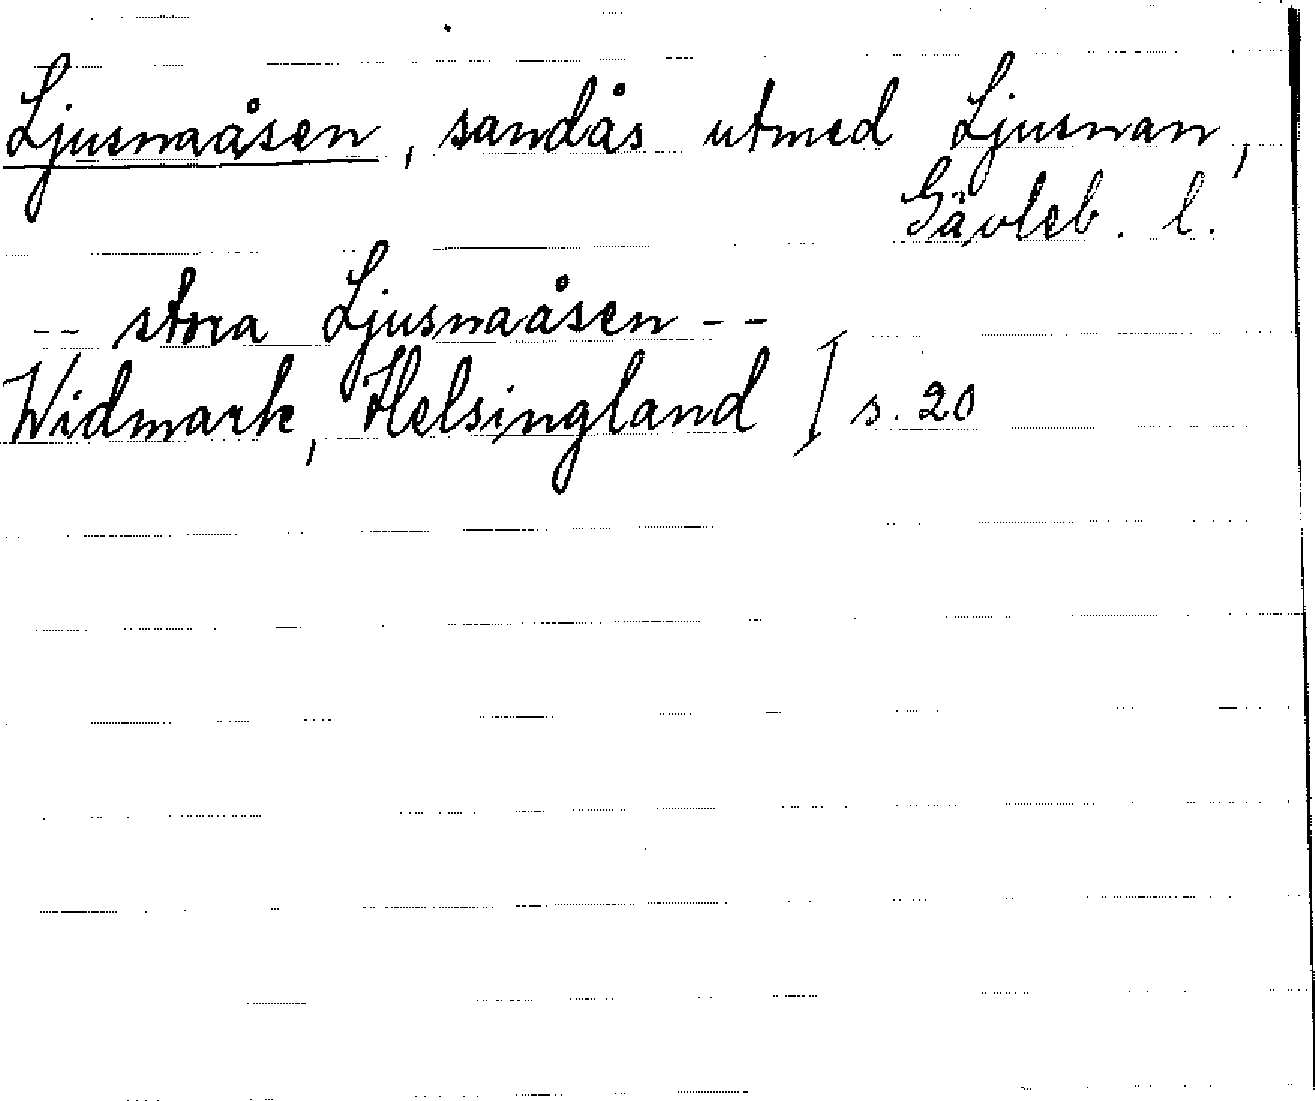 Ljusnaåsen, sandås utmed Ljusnan,
Gävleb. l.
-- stora Ljusnaåsen --
Widmark, Helsingland I s. 20